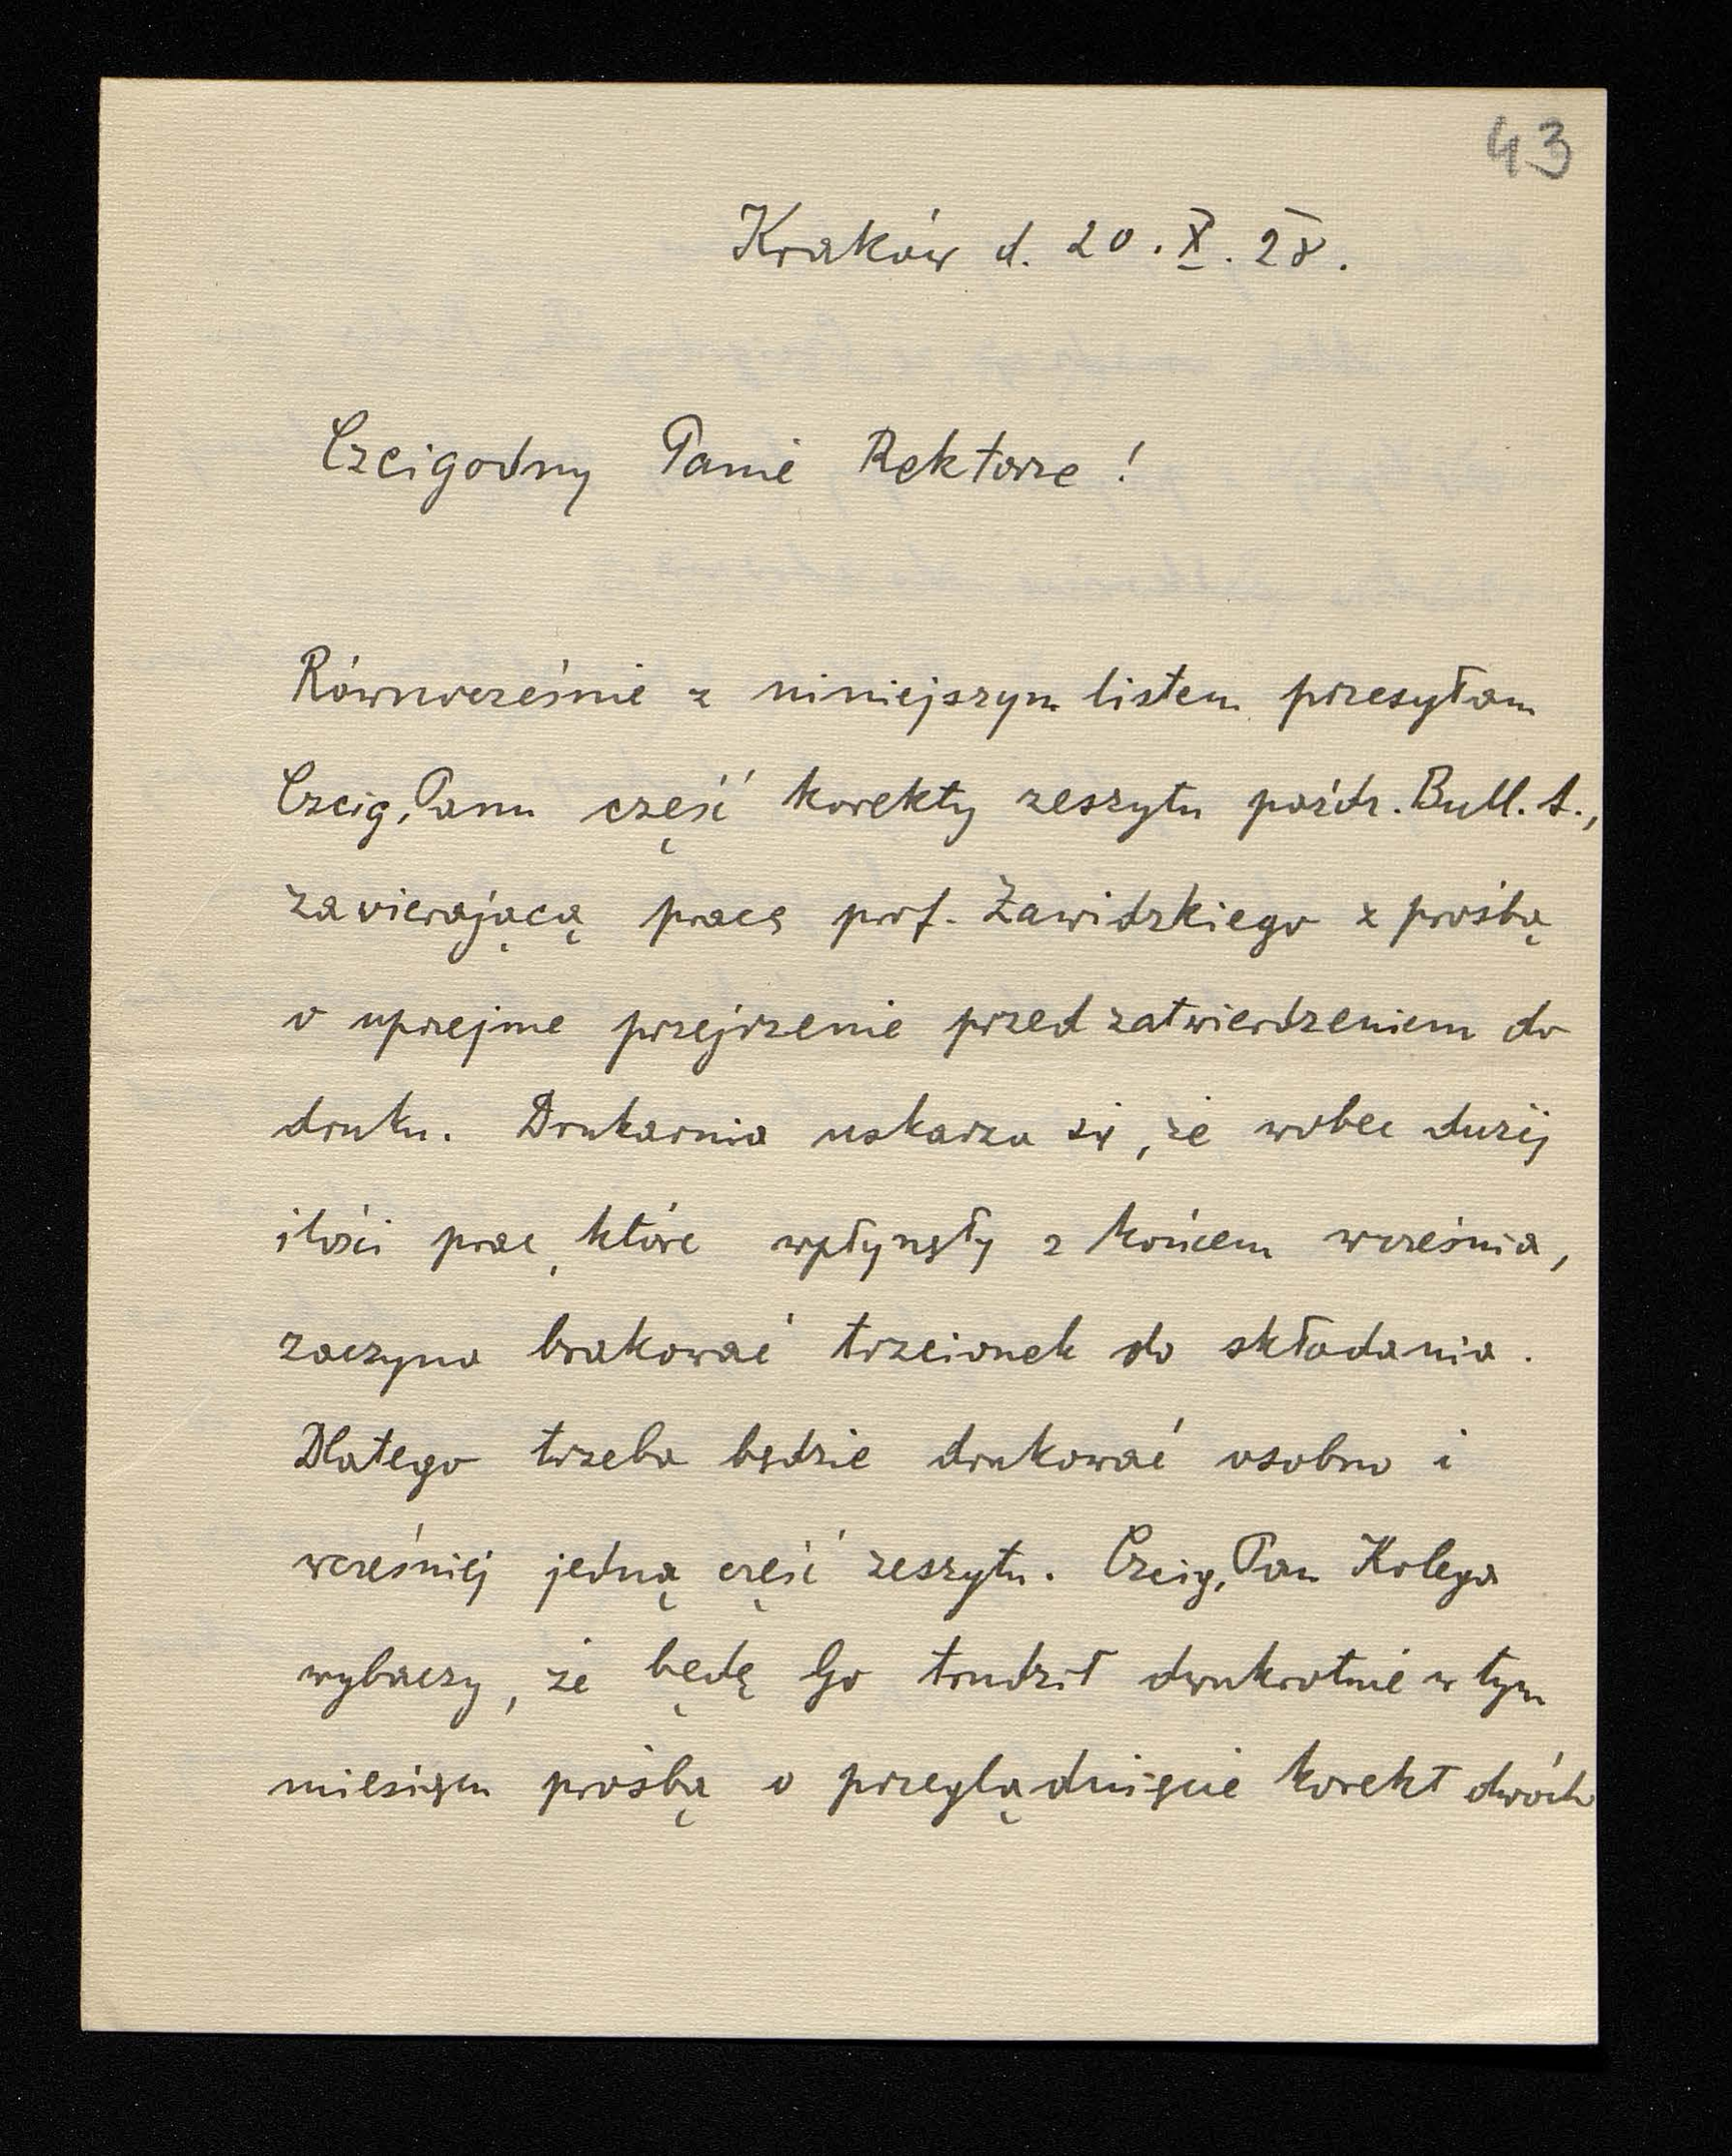 43
Kraków d. 20. X. 28.
Czcigodny Panie Rektorze!
Równocześnie z niniejszym listem przesyłam
Czcig. Panu część korekty zeszytu paźdz. Bull. A.,
zawierającą pracę prof. Zawidzkiego z prośbą
o uprzejme przejrzenie przed zatwierdzeniem do
druku. Drukarnia uskarża się, że wobec dużej
ilości prac, które wpłynęły z końcem września,
zaczyna brakować trzcionek do składania.
Dlatego trzeba będzie drukować osobno i
wcześniej jedną część zeszytu. Czcig. Pan Kolega
wybaczy, że będę Go trudził dwukrotnie w tym
miesiącu prośbą o przeglądnięcie korekt dwóch